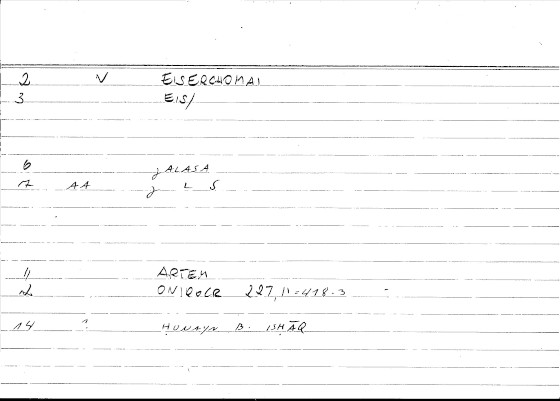 2 V EISERCHOMAI
3 EIS/
6 jALASA
7 AA j L S
11 ARTEM
12 ONIROCR 227,11=418.3
14 : ḤUNAYN B. ISḤĀQ